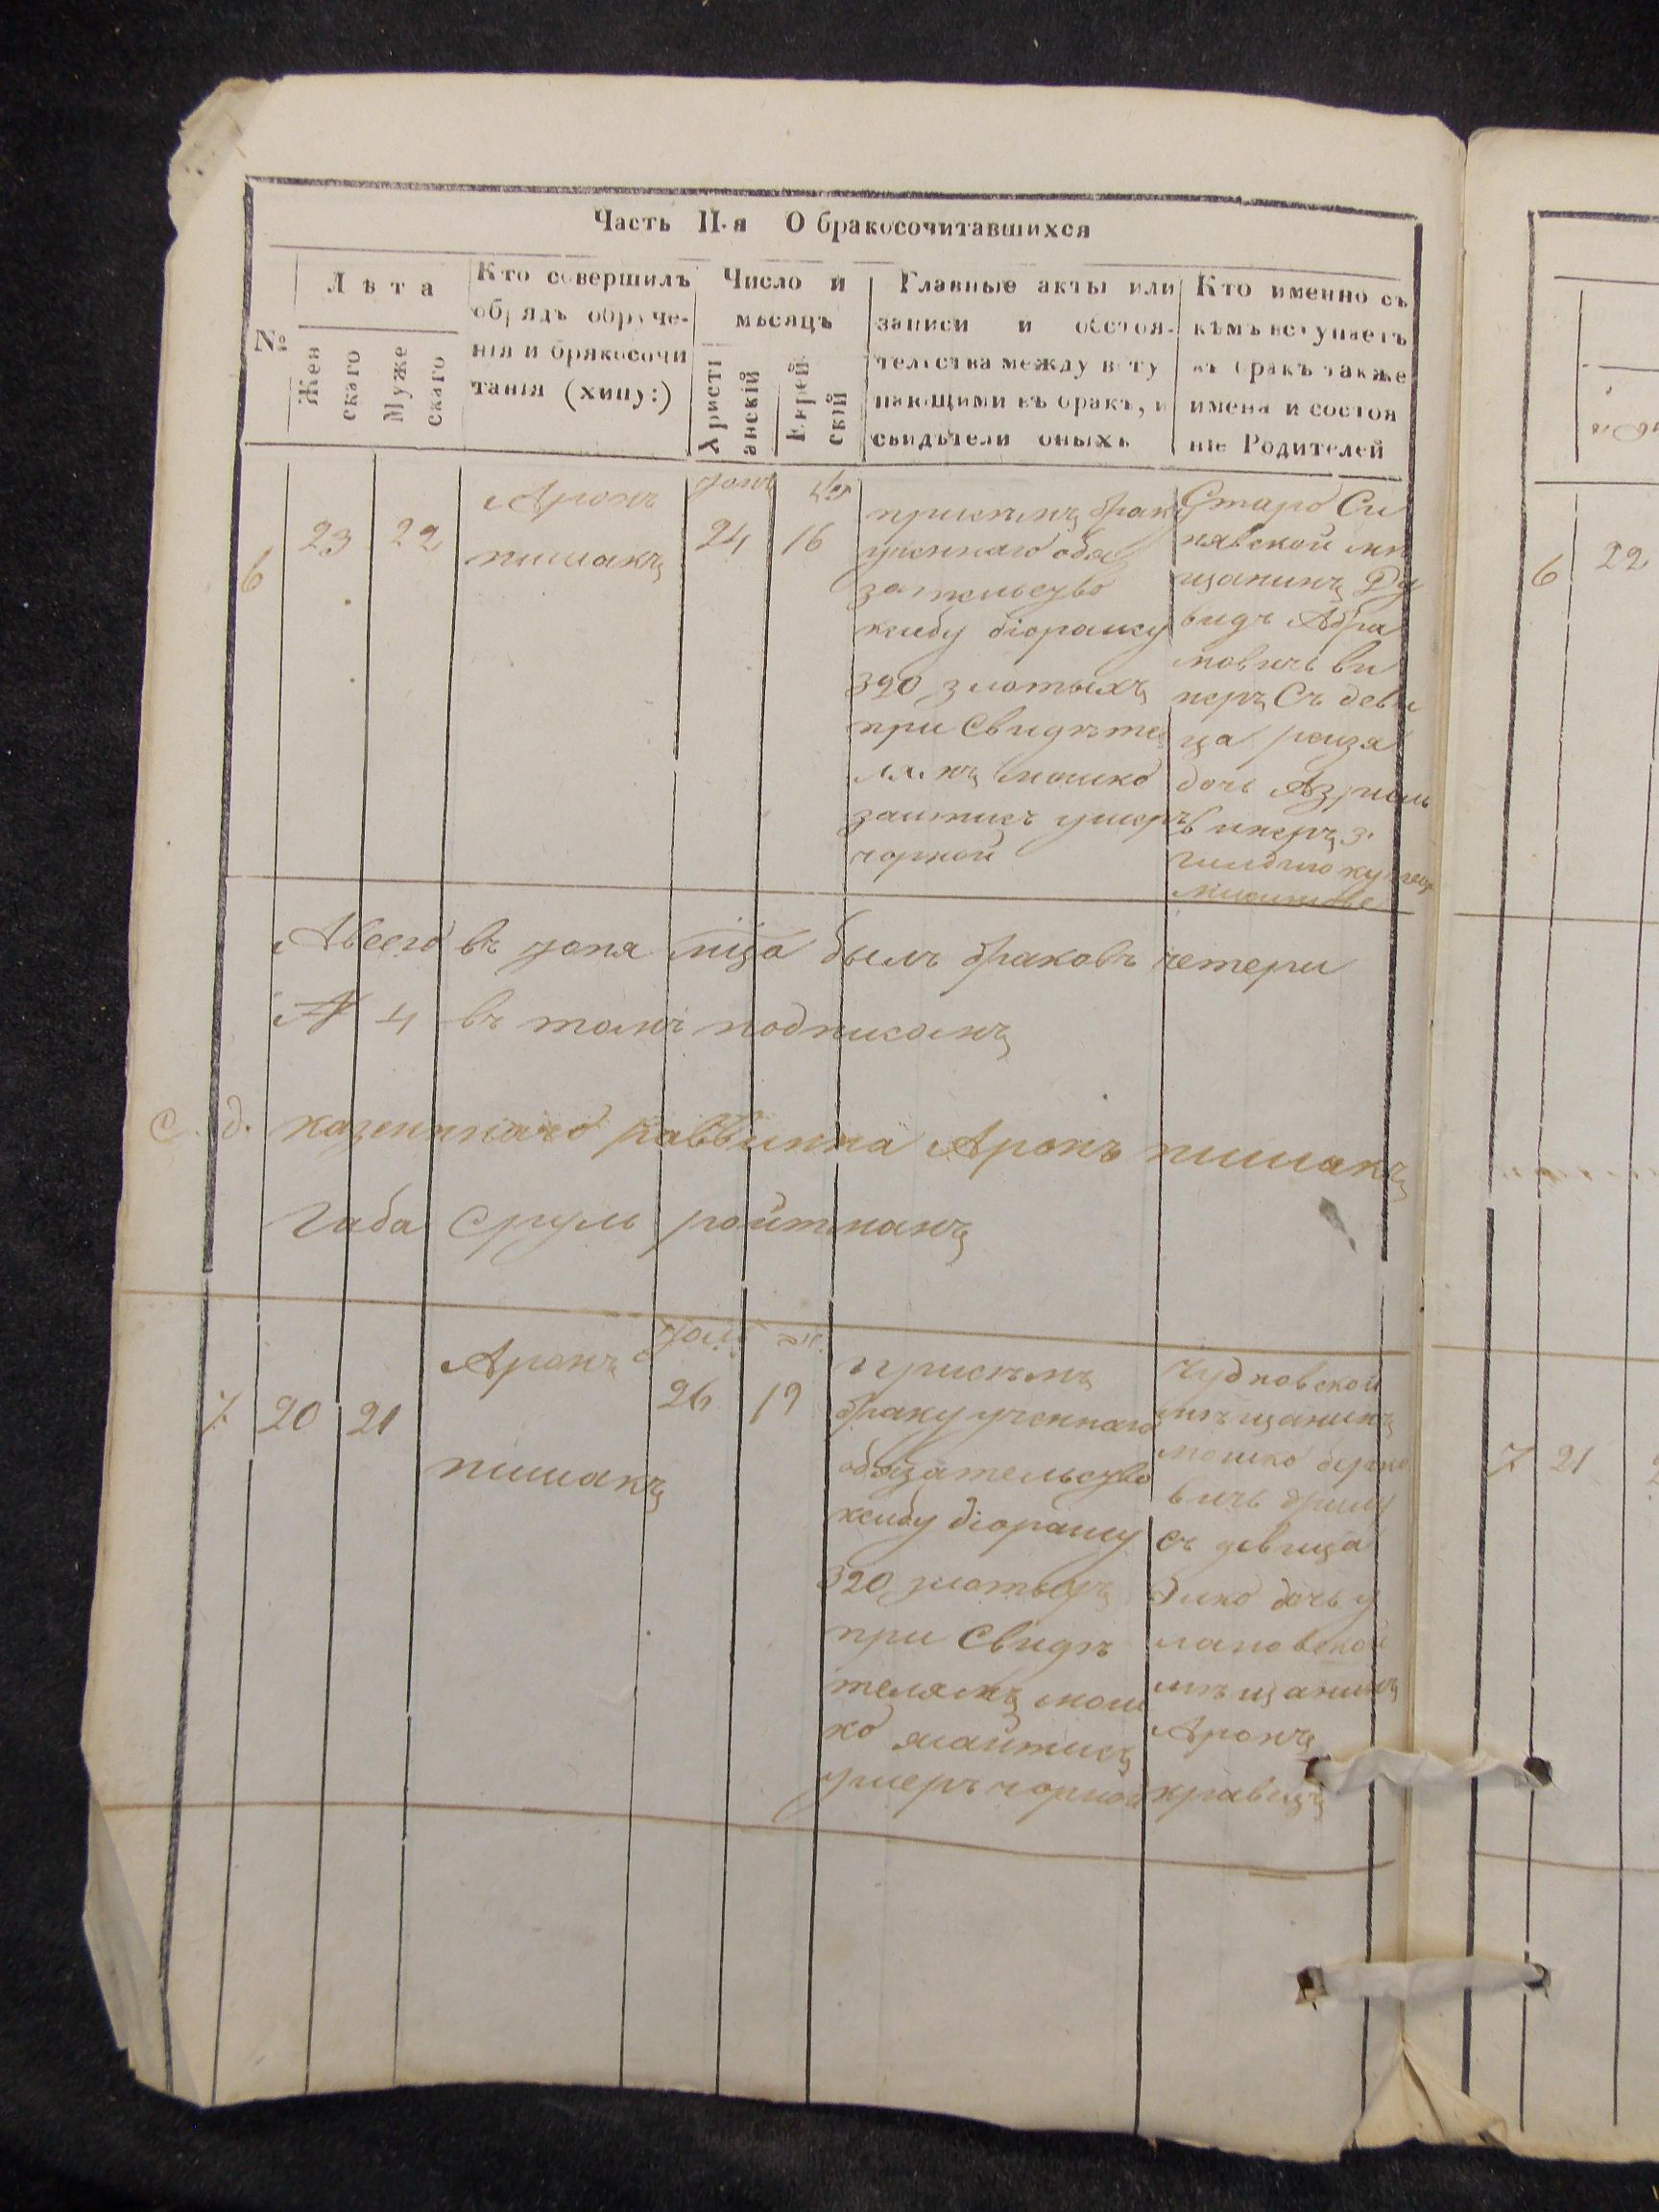 Часть II-я О бракосочитавшихся
№
Лѣта
Жен
скаго
Муже
скаго
Кто совершилъ
обрядъ обруче-
нія и бракосочи
танія (хипу:)
Число и
мѣсяцъ
Христі
анскій
Еврей
скій
Главные акты или
записи и обстоя-
тельства между всту
пающими въ бракъ, и
свидѣтели оныхъ
Кто именно съ
кѣмъ вступаетъ
въ бракъ также
имена и состоя
ніе Родителей
6
23
22
Аронъ
пишакъ
Юнъ
24
16
приемъ брак
ученнаго обя
зательсуво
ксибу діораису
320 злотыхъ
при Свидѣте
лямъ мошко
заитисъ ушеръ
чорной
Старо Си
нявской мѣ
щанинъ Ду
видъ Абра
мовичъ ви
неръ Съ деви
ца реизя
дочь Азриль
винеръ 3.
гилдию купец
Авсего въ юня мца былъ браковъ четери
№ 4 въ томъ подписомъ
С. д. казеннаго раввинна Аронъ пишакъ
Габа Срулъ ройтманъ
7
20
21
Аронъ
пишакъ
Юлъ
26
19
приемъ
браку ученнаго
обязательсуво
ксибу діораису
320 злотыхъ
при Свидѣ
телямъ мош
ко заитисъ
ушеръ чорной
Чудновской
мѣщанинъ
мошко берко
вичъ
съ девица
дочь у
лановской
мѣщанинъ
Аронъ
кравецъ
6
22
7
21